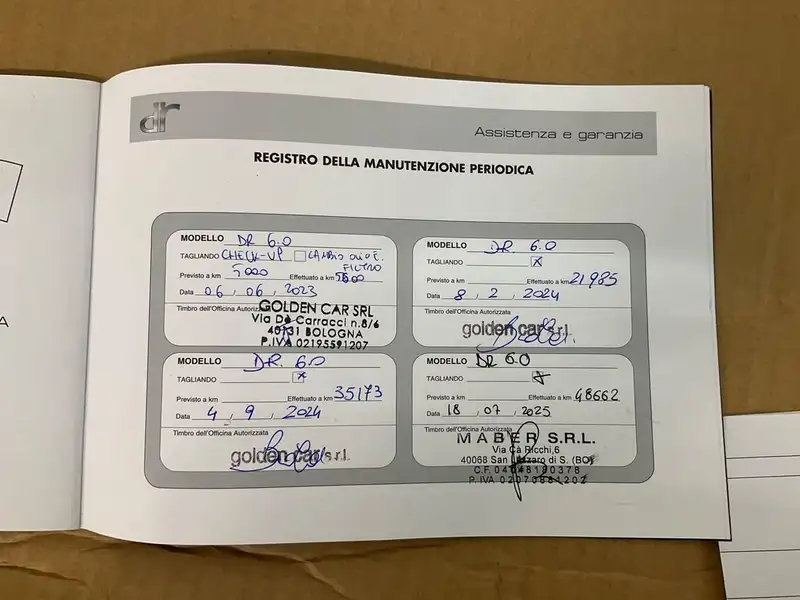 dr
Assistenza e garanzia
REGISTRO DELLA MANUTENZIONE PERIODICA
MODELLO DR 6.0
TAGLIANDO CHECK-UP CAMBIO OLIO E
FILTRO
Previsto a km 5000 Effettuato a km
Data 06, 06, 2023
Timbro dell'Officina Autorizzata
GOLDEN CAR SRL
Via De Carracci n.8/6
40131 BOLOGNA
P.IVA 02195591207
MODELLO DR 6.0
TAGLIANDO X
Previsto a km Effettuato a km 21985
Data 8, 2, 2024
Timbro dell'Officina Autorizzata
golden car s.r.l.
MODELLO DR 6.0
TAGLIANDO X
Previsto a km Effettuato a km 35173
Data 4, 9, 2024
Timbro dell'Officina Autorizzata
golden car s.r.l.
MODELLO DR 6.0
TAGLIANDO X
Previsto a km Effettuato a km 48662
Data 18, 07, 2025
Timbro dell'Officina Autorizzata
MABER S.R.L.
Via Cà Ricchi,6
40068 San Lazzaro di S. (BO)
C.F.
P.IVA 02070881202
A